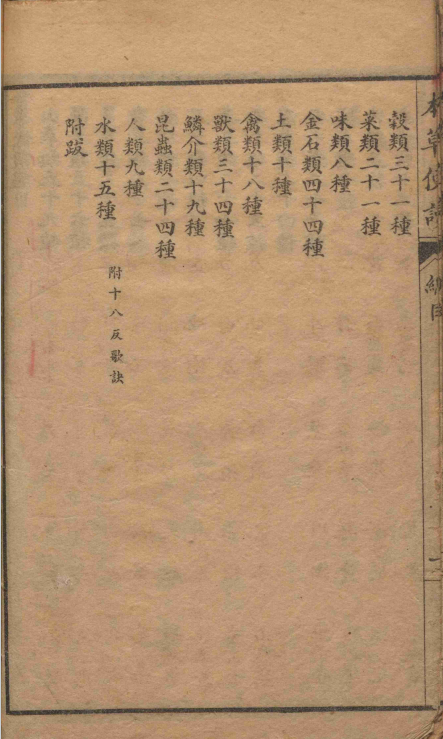 本草便讀
總目
穀類三十一種
菜類二十一種
味類八種
金石類四十四種
土類十種
禽類十八種
獸類三十四種
鱗介類十九種
昆蟲類二十四種
人類九種
水類十五種
附十八反歌訣
附跋